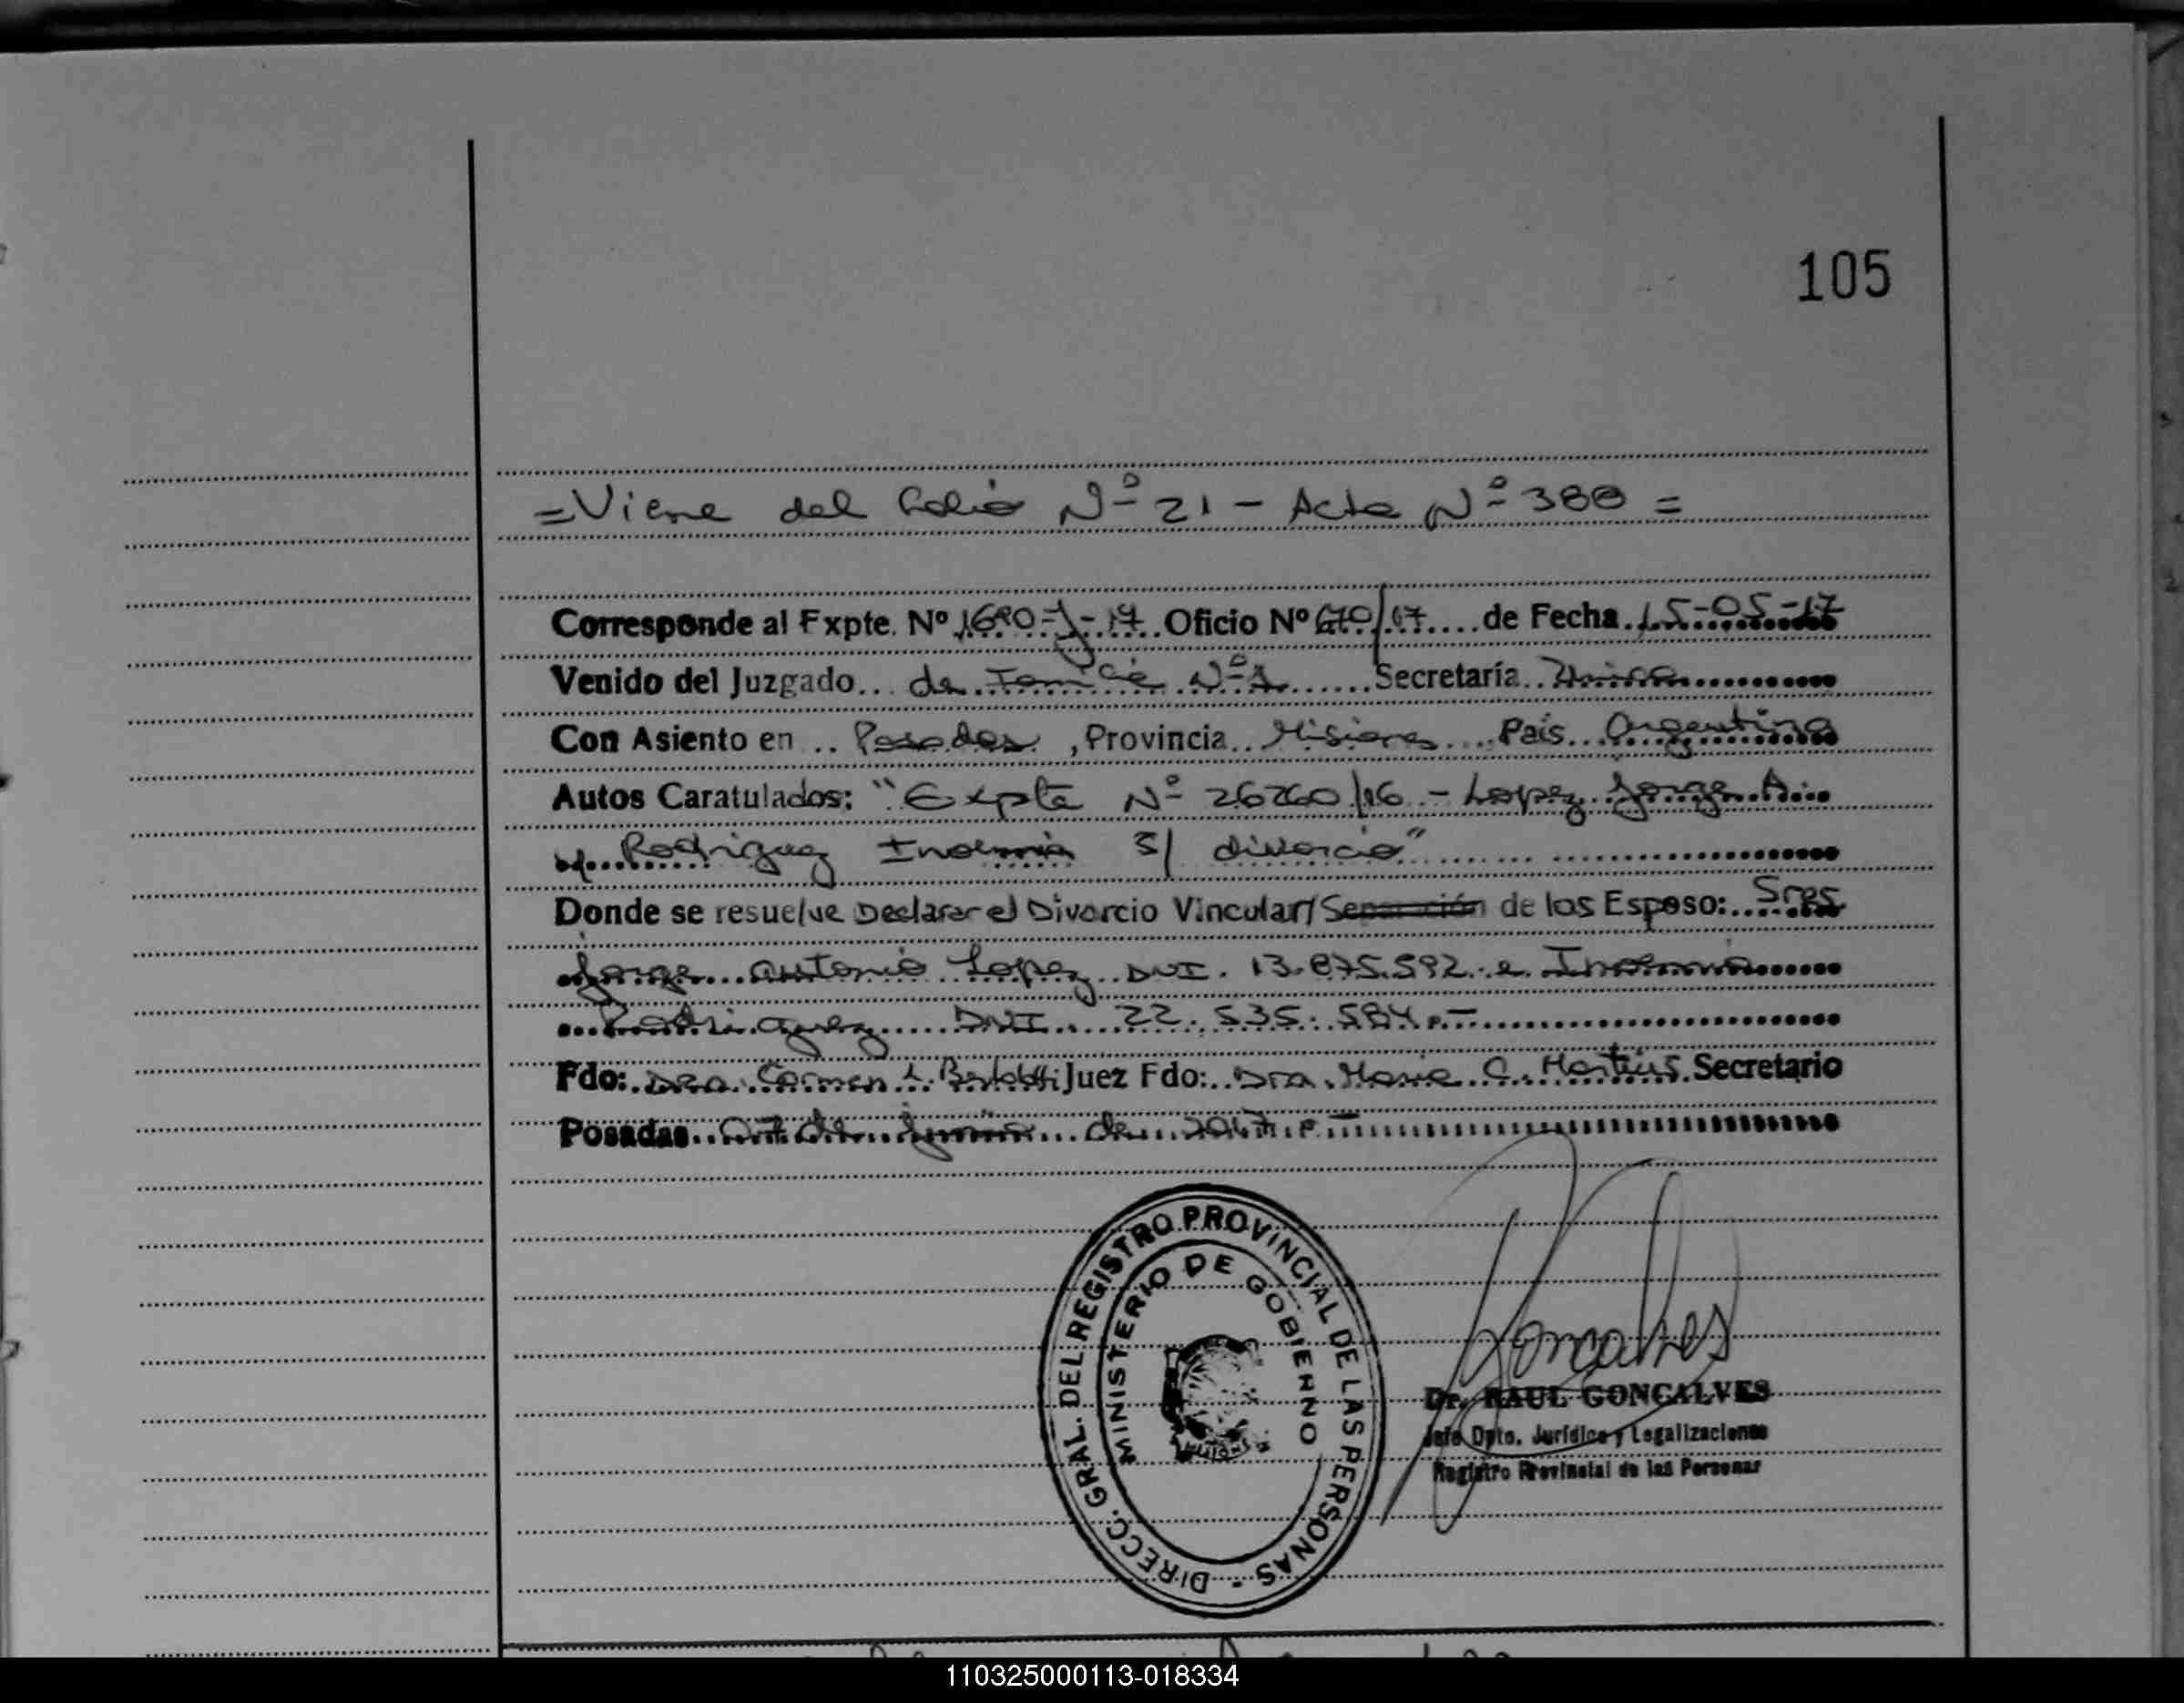 105
=Viene del Folio Nº 21 - Acta Nº 388 =
Corresponde al Expte. Nº 1690-J-17 Oficio Nº 670/17 de Fecha 15-05-17
Venido del Juzgado de Familia Nº 1 Secretaría Única
Con Asiento en Posadas, Provincia Misiones País Argentina
Autos Caratulados: "Expte Nº 26260/16 - Lopez Jorge A.
Rodriguez S/ divorcio"
Donde se resuelve Declarar el Divorcio Vincular/Separación de los Esposo: Sres
Jorge Antonio Lopez DNI. 13.875.592. e
Rodriguez DNI 22.535.584.-
Fdo: Dra. Carmen Juez Fdo: Dra. Maria C. Secretario
Posadas de Junio de 2017.-
DIRECC. GRAL. DEL REGISTRO PROVINCIAL DE LAS PERSONAS -
MINISTERIO DE GOBIERNO
MISIONES
Goncalves
Dr. RAUL GONCALVES
Jefe Dpto. Jurídico y Legalizaciones
Registro Provincial de las Personas
110325000113-018334